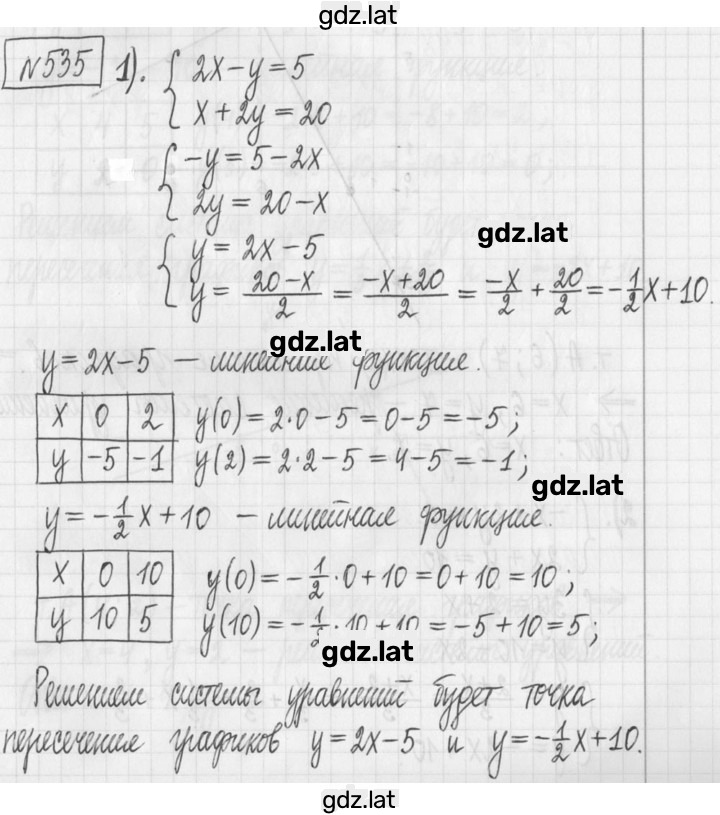 gdz.lat
№535 1). { 2x-y=5
x+2y=20
{ -y=5-2x
2y=20-x
gdz.lat
{ y=2x-5
y=(20-x)/2=(-x+20)/2=-x/2+20/2=-1/2x+10.
gdz.lat
y=2x-5 – линейная функция.
x 0 2 y(0)=2·0-5=0-5=-5;
y -5 -1 y(2)=2·2-5=4-5=-1;
gdz.lat
y=-1/2x+10 – линейная функция.
x 0 10 y(0)=-1/2·0+10=0+10=10;
y 10 5 y(10)=-1/2·10+10=-5+10=5;
gdz.lat
Решением системы уравнений будет точка
пересечения графиков y=2x-5 и y=-1/2x+10.
gdz.lat